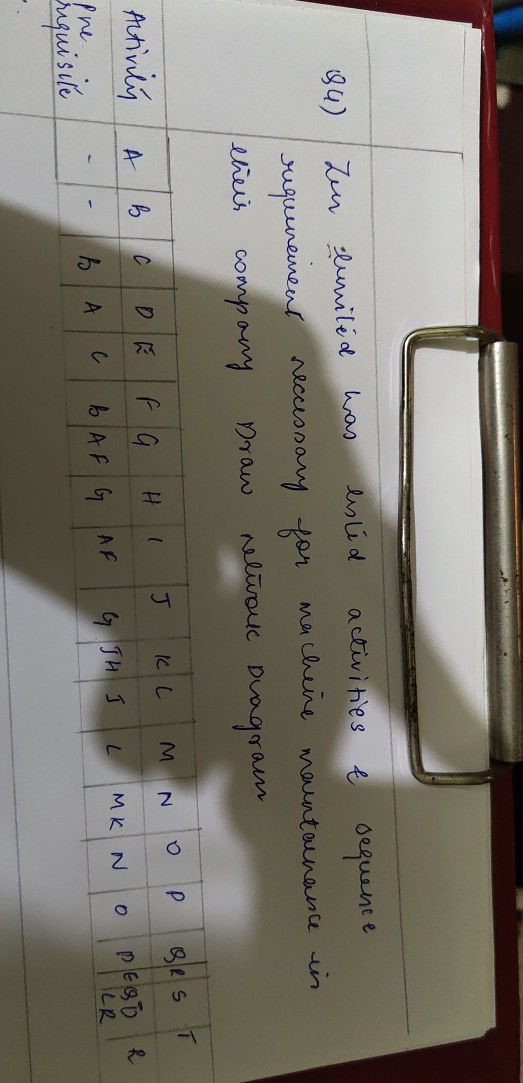 Q4) Zen limited has listed activities & sequence
requirement necessary for machine maintainance in
their company Draw network Diagram
Activity A B C D E F G H I J K L M N O P Q R S T
pre requisite - - B A C B AF G AF G JH I L MK N O P EG LR R